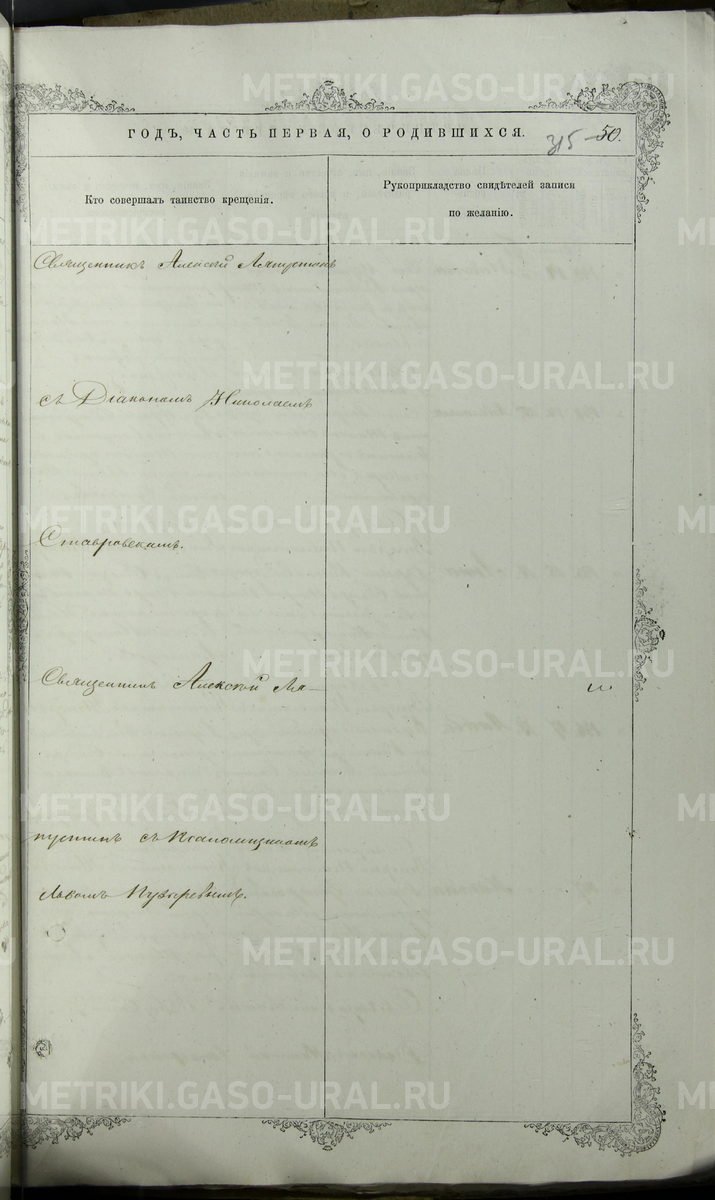 METRIKI.GASO-URAL.RU
ГОДЪ, ЧАСТЬ ПЕРВАЯ, О РОДИВШИХСЯ.
315 50.
Кто совершалъ таинство крещенія.
Рукоприкладство свидѣтелей записи
по желанію.
METRIKI.GASO-URAL.RU
Священникъ Алексѣй Ляпустинъ
METRIKI.GASO-URAL.RU
съ Діакономъ Николаемъ
METRIKI.GASO-URAL.RU
Ставровскимъ.
METRIKI.GASO-URAL.RU
Священникъ Алексѣй Ля-
METRIKI.GASO-URAL.RU
пустинъ съ Псаломщикомъ
Львомъ Пузыревымъ.
METRIKI.GASO-URAL.RU
METRIKI.GASO-URAL.RU